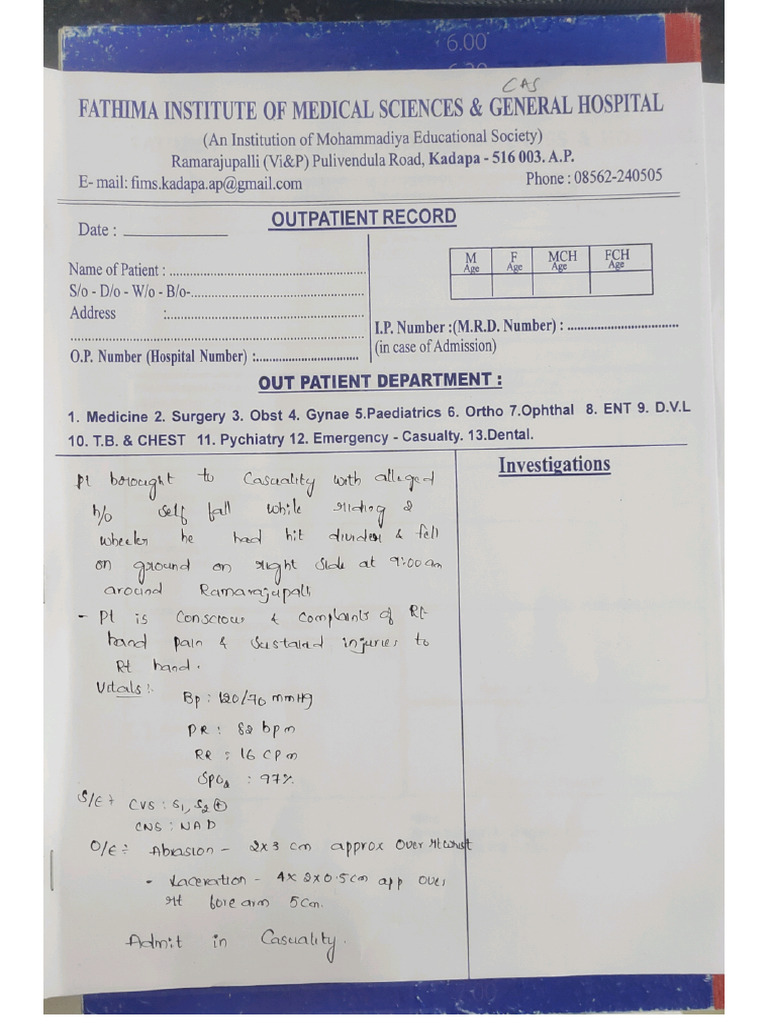 6.00
CAS
FATHIMA INSTITUTE OF MEDICAL SCIENCES & GENERAL HOSPITAL
(An Institution of Mohammadiya Educational Society)
Ramarajupalli (Vi&P) Pulivendula Road, Kadapa - 516 003. A.P.
E- mail: fims.kadapa.ap@gmail.com Phone : 08562-240505
OUTPATIENT RECORD
Date :
Name of Patient :
S/o - D/o - W/o - B/o-
Address :
O.P. Number (Hospital Number) :
M F MCH FCH
Age Age Age Age
I.P. Number :(M.R.D. Number) :
(in case of Admission)
OUT PATIENT DEPARTMENT :
1. Medicine 2. Surgery 3. Obst 4. Gynae 5.Paediatrics 6. Ortho 7.Ophthal 8. ENT 9. D.V.L
10. T.B. & CHEST 11. Pychiatry 12. Emergency - Casualty. 13.Dental.
Investigations
Pt borought to Casuality with alleged
h/o self fall while riding 2
wheeler he had hit divider & fell
on ground on right side at 9:00am
around Ramarajupalli
- Pt is conscious & complaints of Rt
hand pain & sustained injuries to
Rt hand.
Vitals :-
Bp : 120/70 mmHg
PR : 82 bpm
RR : 16 cpm
SpO2 : 97%
S/E ÷ CVS : S1, S2 ⊕
CNS : NAD
O/E ÷ Abrasion - 2x3 cm approx over rt wrist
- Laceration - 4x2x0.5cm app over
rt forearm 5cm.
Admit in Casuality.